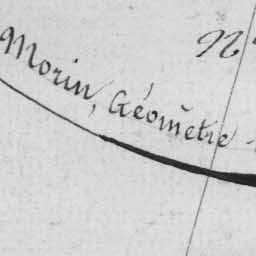 Morin, Géomètre